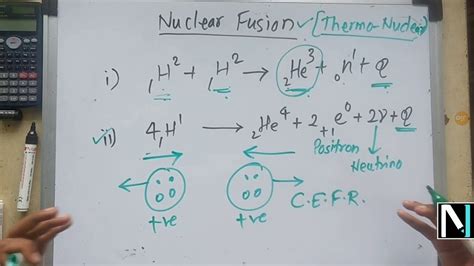 Nuclear Fusion ✓ [Thermo-Nuclear]
i) ₁H² + ₁H² → ₂He³ + ₀n¹ + Q
✓ii) 4₁H¹ → ₂He⁴ + 2₊₁e⁰ + 2ν + Q
Positron Neutrino
+ve +ve C.E.F.R.
N